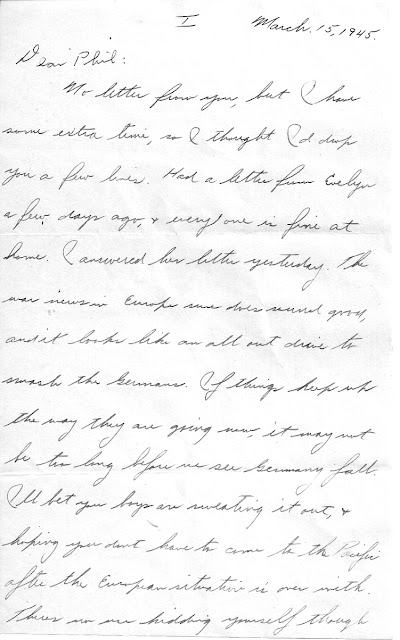 I
March. 15, 1945.
Dear Phil:
No letter from you, but I have
some extra time, so I thought I'd drop
you a few lines. Had a letter from Evelyn
a few days ago, & everyone is fine at
home. I answered her letter yesterday. The
war news in Europe sure does sound good,
and it looks like an all out drive to
smash the Germans. If things keep up
the way they are going now, it may not
be too long before we see Germany fall.
I'll bet you boys are sweating it out, &
hoping you don't have to come to the Pacific
after the European situation is over with.
Theres no use kidding yourself though